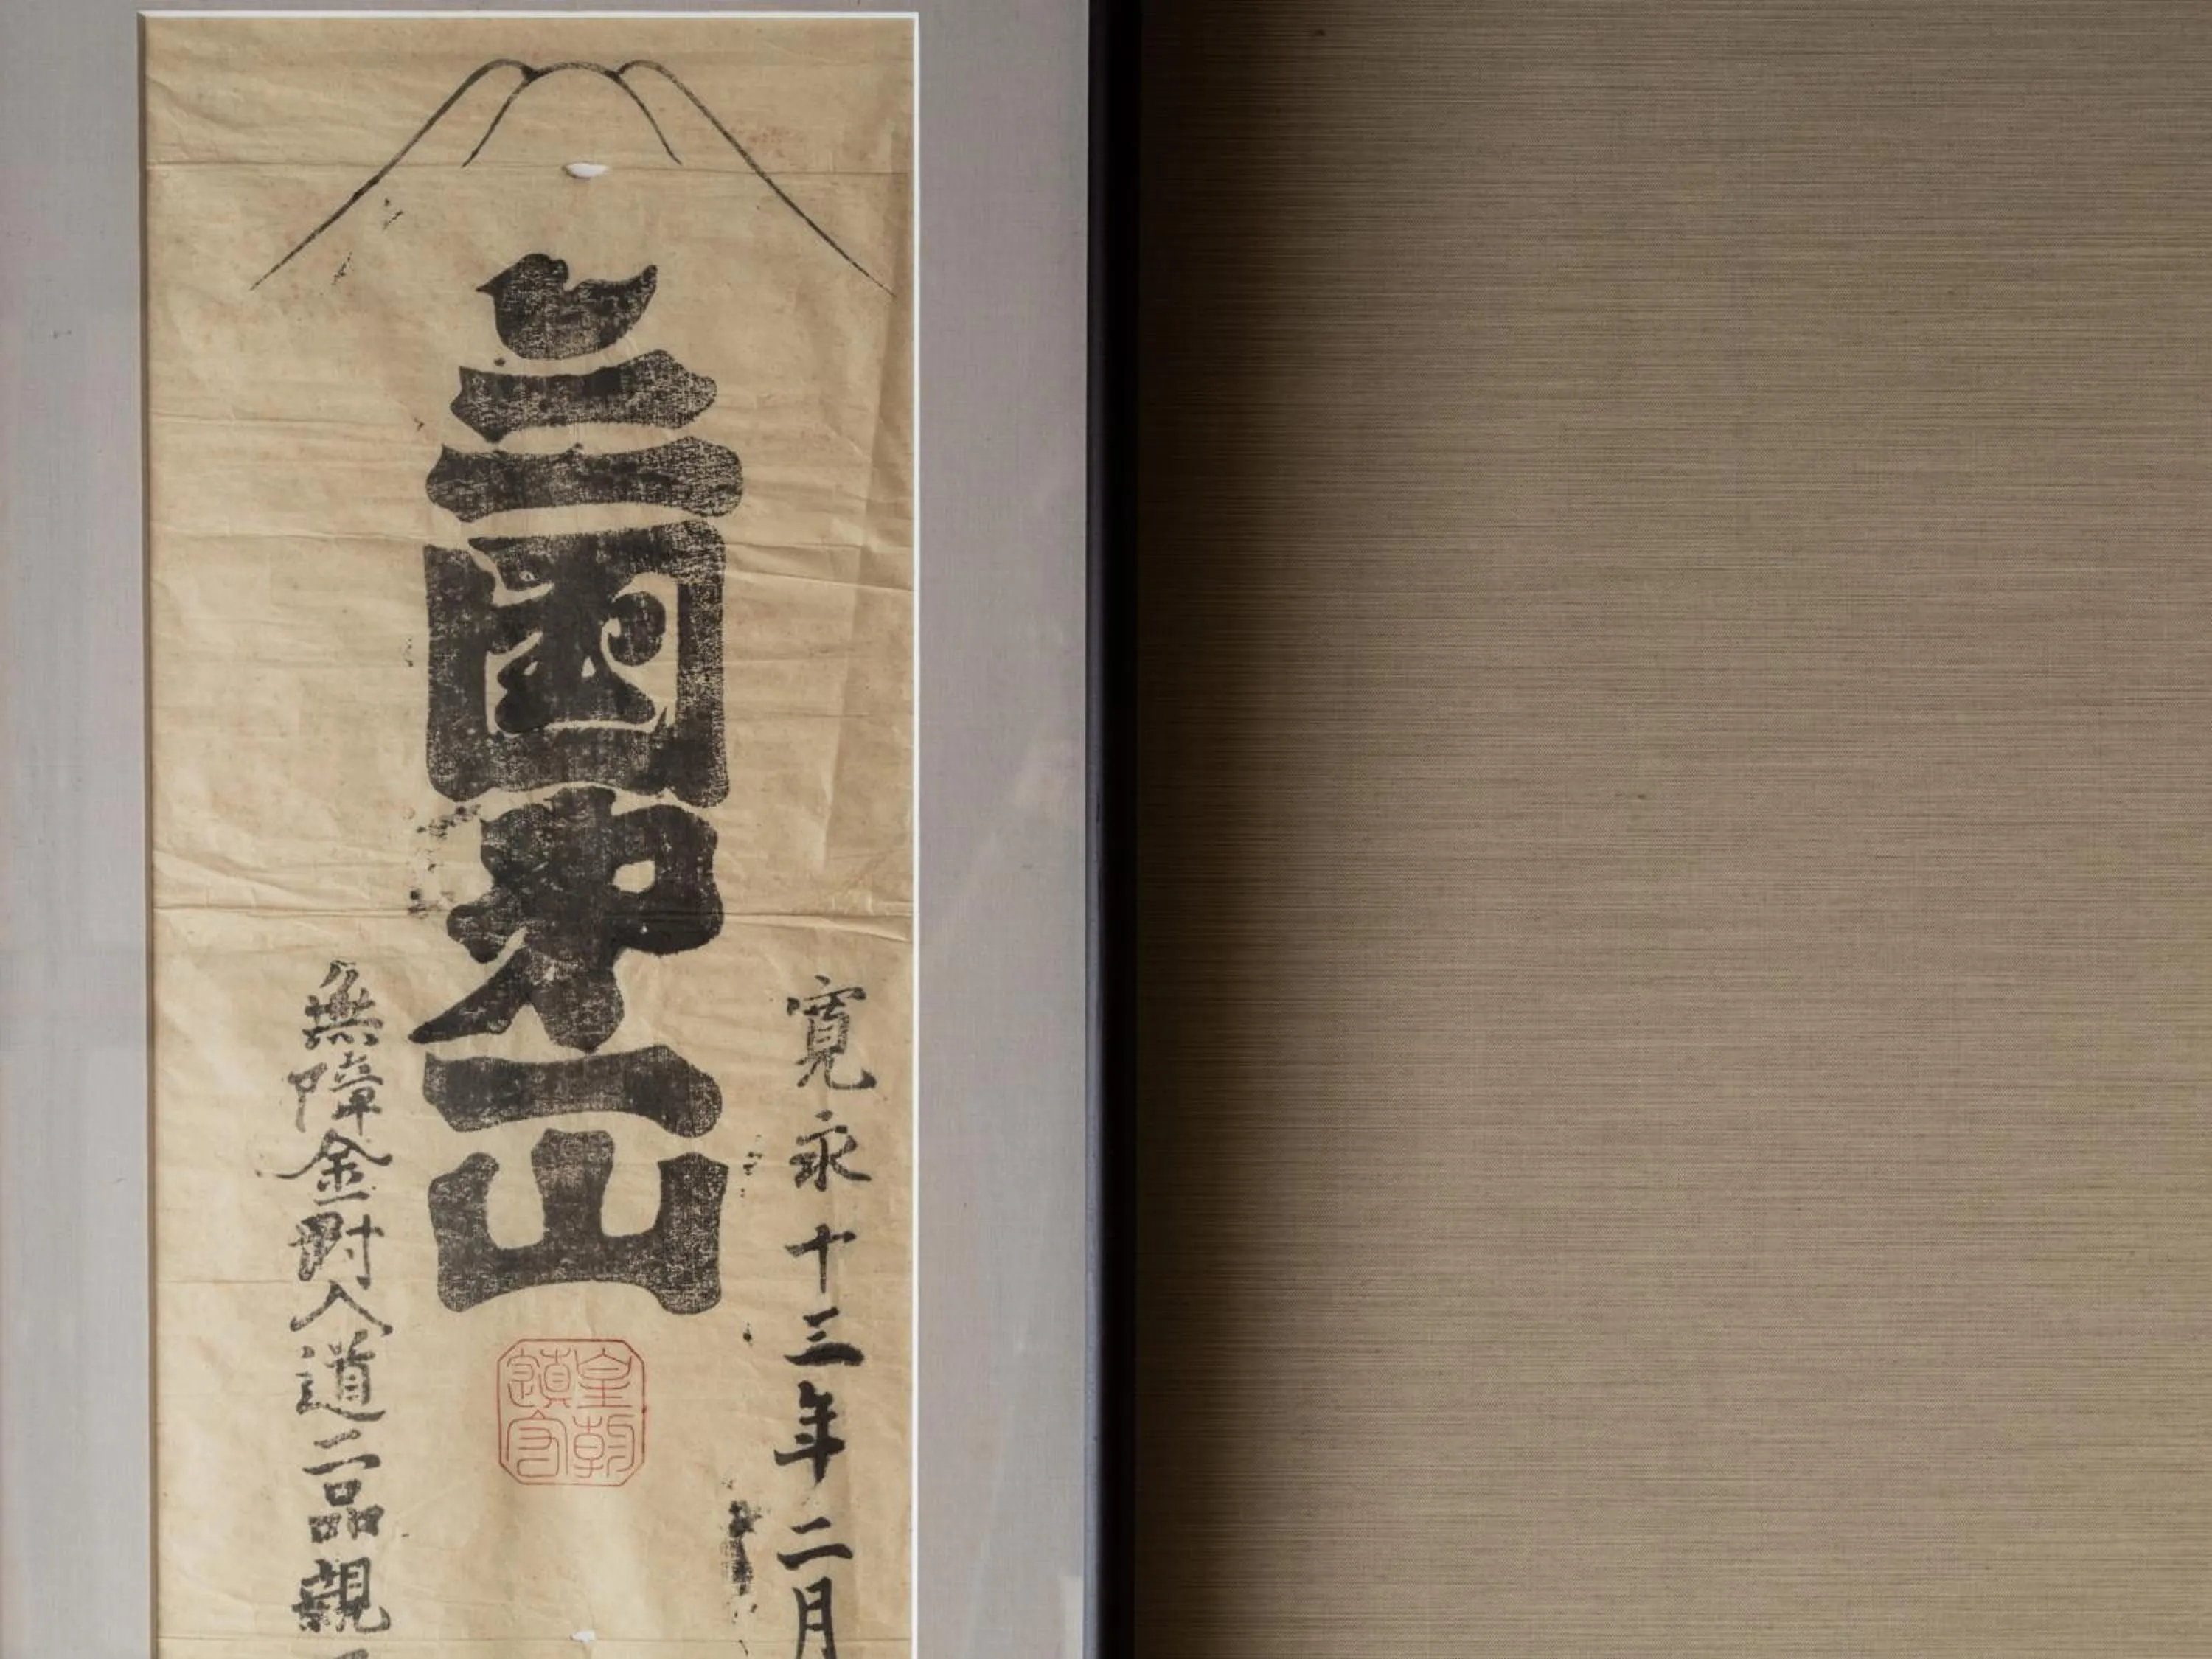 寛永十三年二月
三國第一山
皇朝
無障金剛入道二品親